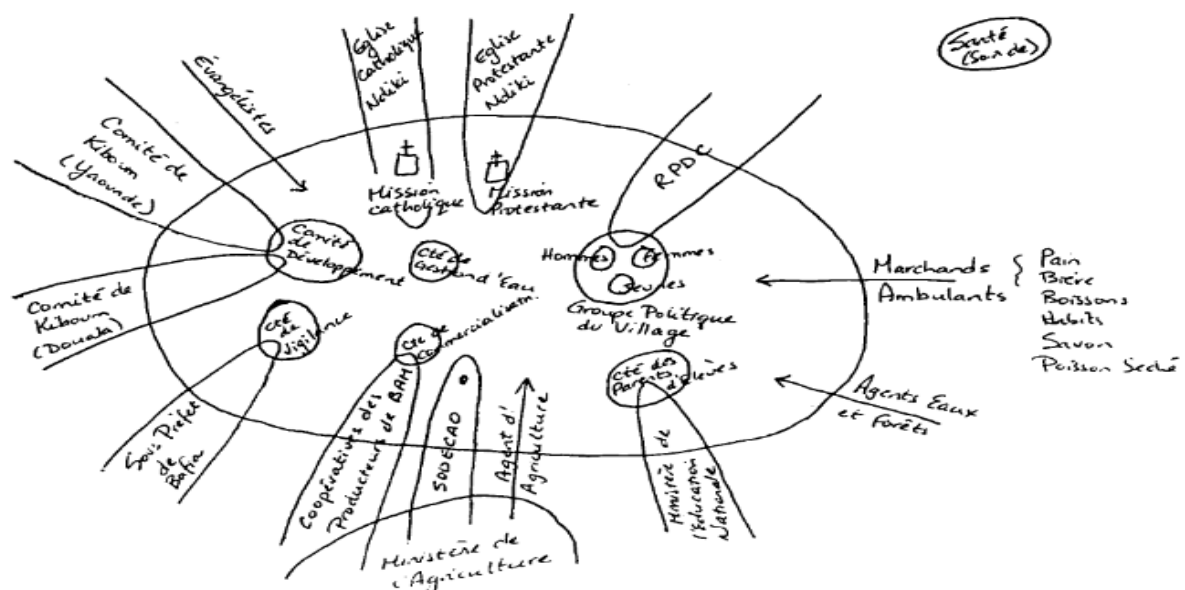 Santé
Eglise
Catholique
Ndiki
Eglise
Protestante
Ndiki
Évangélistes
Comité de
Kiboum
(Yaoundé)
RPDC
Mission
Catholique
Mission
Protestante
Comité
de
Développement
Cté de
Gestion d'Eau
Hommes
Femmes
Jeunes
Groupe Politique
du Village
Marchands
Ambulants
Pain
Bière
Boissons
Habits
Savon
Poisson Séché
Comité de
Kiboum
(Douala)
Cté
de
Vigilance
Cté de
Commercialisatn.
Cté des
Parents
d'Elèves
Agents Eaux
et Forêts
Sous Préfet
de
Bafia
Coopératives des
Producteurs de BAM
SODECAO
Agent d'
Agriculture
Ministère de
l'Education
Nationale
Ministère de
l'Agriculture